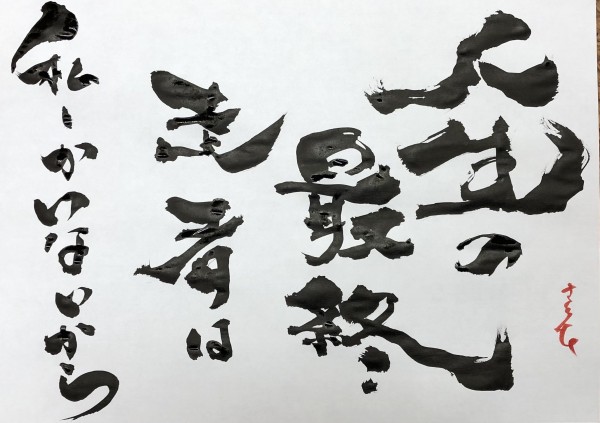 人生の
最終
走者は
私しかいないから